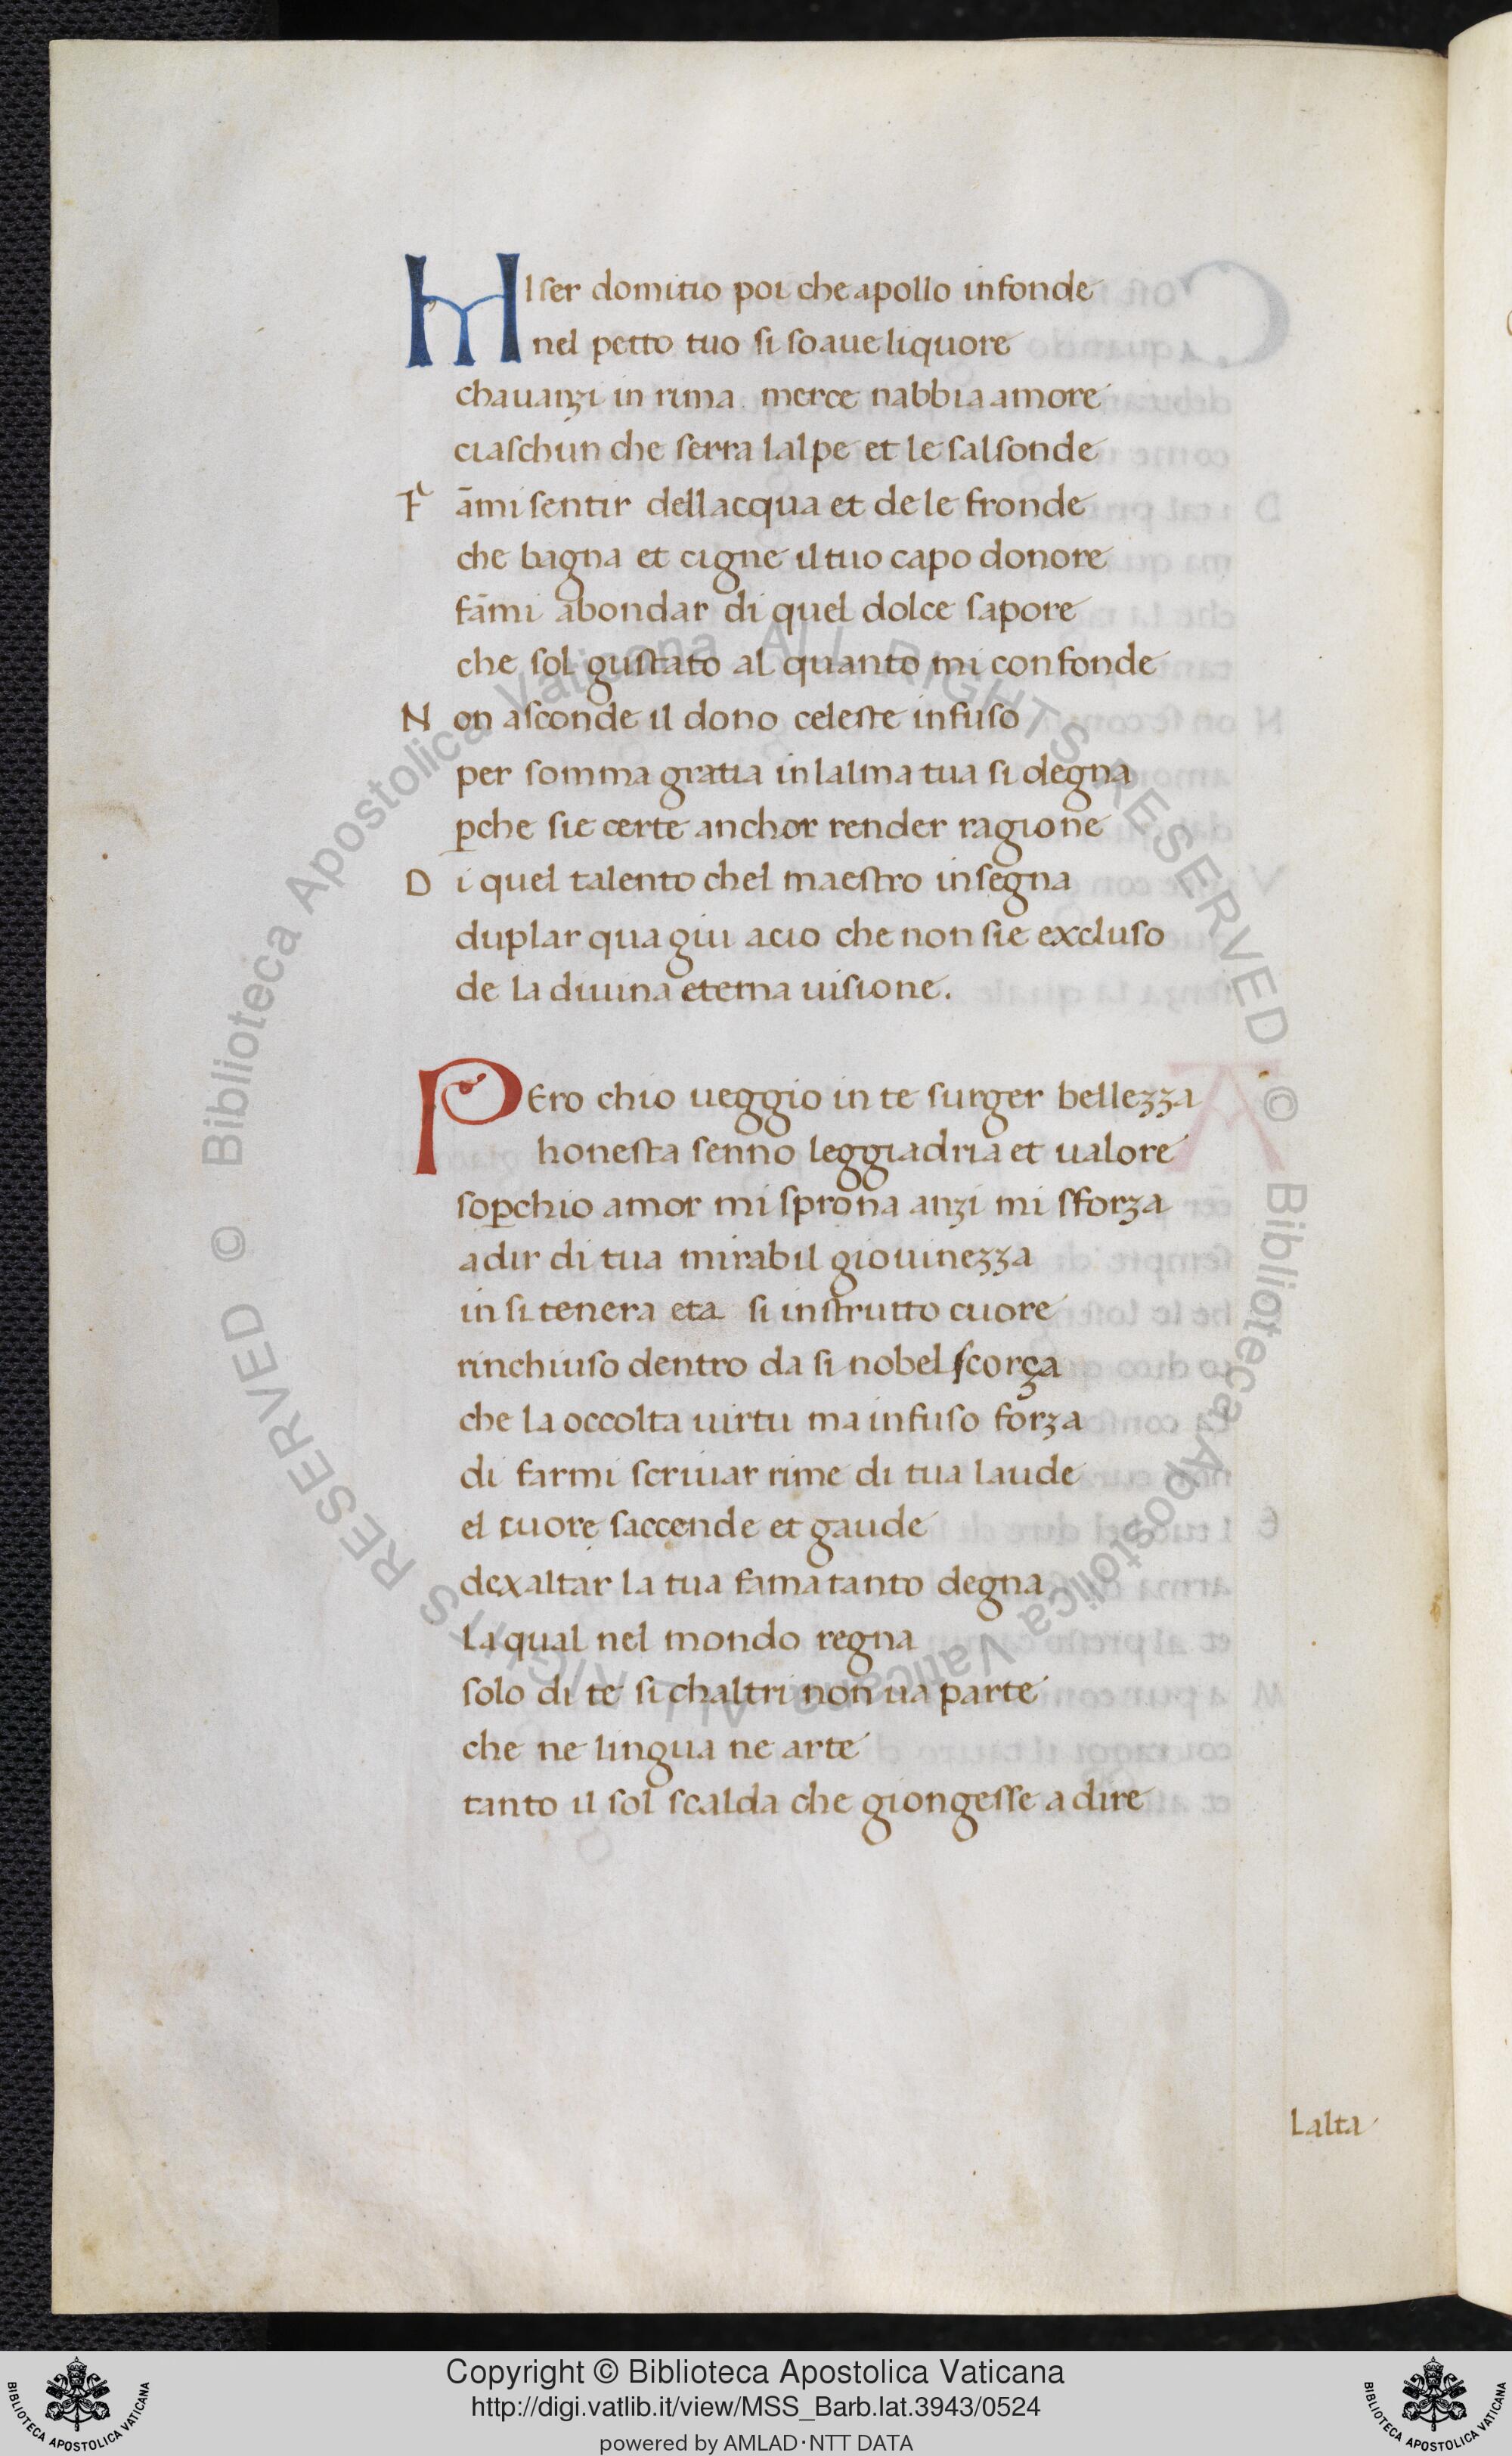 MIser domitio poi che apollo infonde
nel petto tuo si soaue liquore
chauanzi in rima merce nabbia amore
ciaschun che serra lalpe et le salsonde
F āmi sentir dellacqua et de le fronde
che bagna et cigne il tuo capo donore
fāmi abondar di quel dolce sapore
che sol gustato al quanto mi confonde
N on asconde il dono celeste infuso
per somma gratia in lalma tua si degna
p̱che sie certe anchor render ragione
D i quel talento chel maestro insegna
duplar qua giu acio che non sie excluso
de la diuina eterna uisione.
PEro chio ueggio in te surger bellezza
honesta senno leggiadria et ualore
sop̱chio amor mi sprona anzi mi sforza
a dir di tua mirabil giouinezza
in si tenera eta si instrutto cuore
rinchiuso dentro da si nobel scorça
che la occolta uirtu ma infuso forza
di farmi scriuar rime di tua laude
el cuore saccende et gaude
dexaltar la tua fama tanto degna
la qual nel mondo regna
solo di te si chaltri non ua parte
che ne lingua ne arte
tanto il sol scalda che giongesse a dire
Lalta
© Biblioteca Apostolica Vaticana ALL RIGHTS RESERVED © Biblioteca Apostolica Vaticana ALL RIGHTS RESERVED
Copyright © Biblioteca Apostolica Vaticana
http://digi.vatlib.it/view/MSS_Barb.lat.3943/0524
powered by AMLAD·NTT DATA
BIBLIOTECA APOSTOLICA VATICANA
BIBLIOTECA APOSTOLICA VATICANA